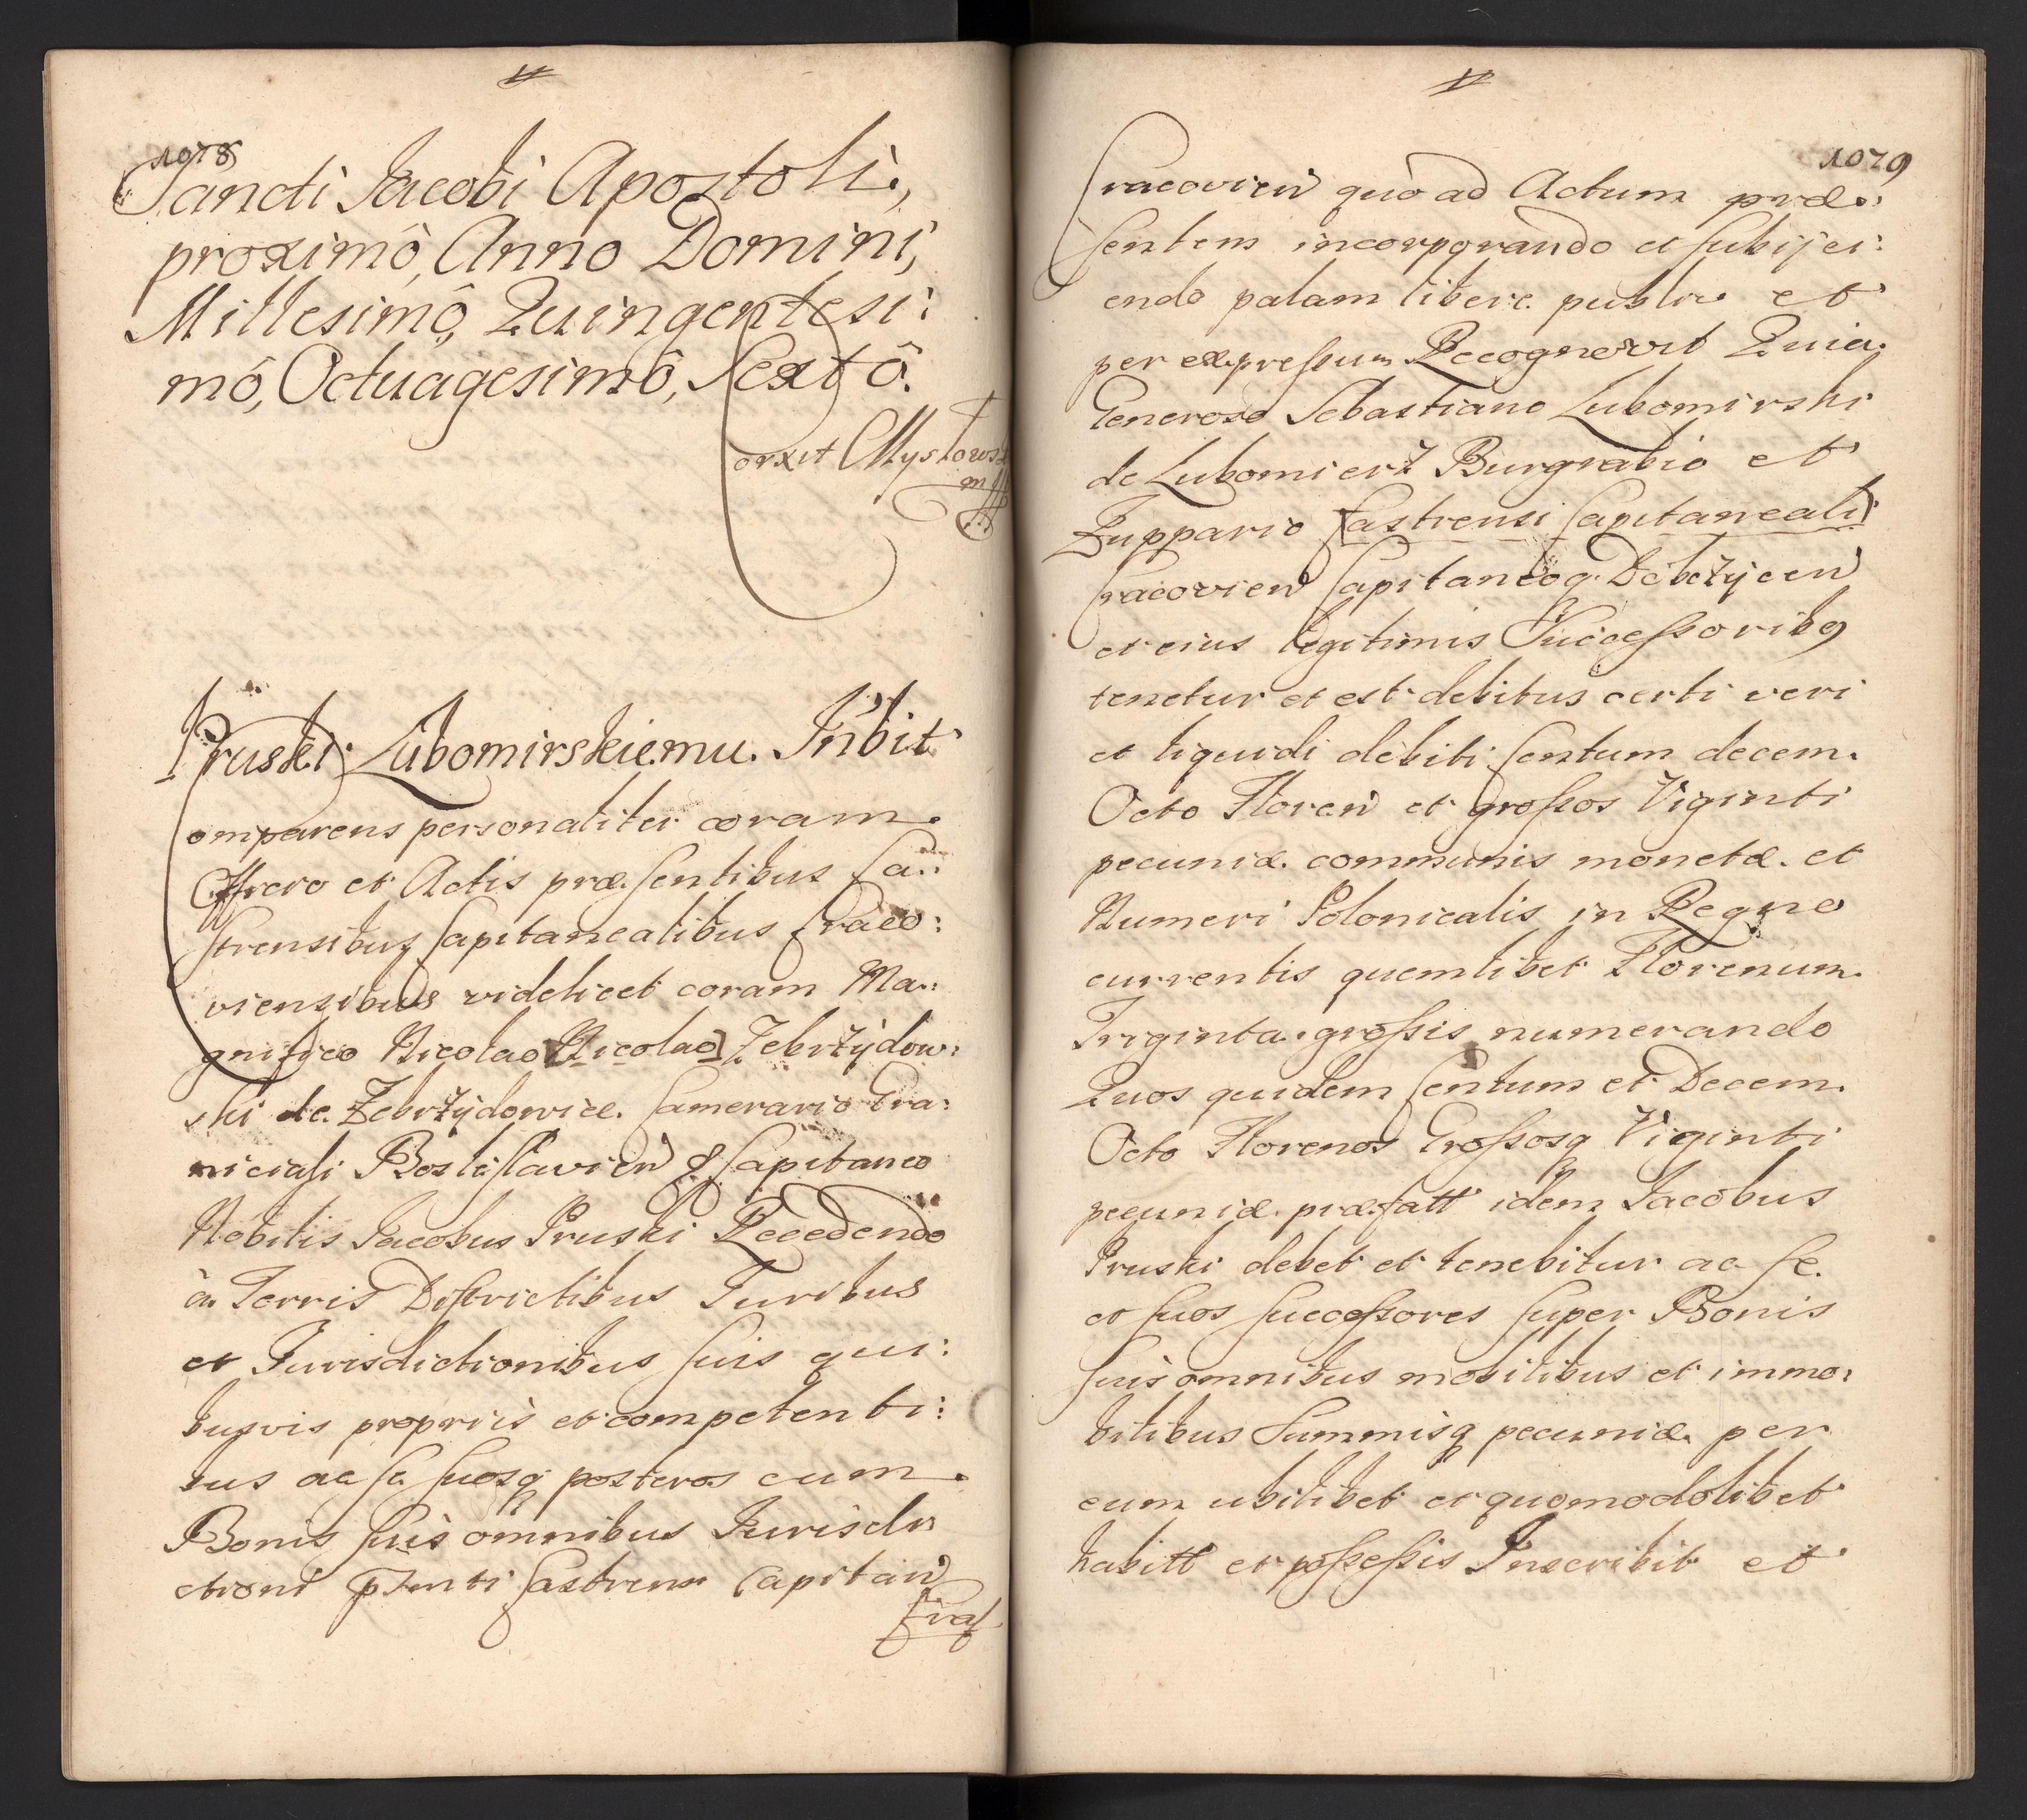 1078
Sancti Jacobi Apostoli,
proximô, Anno Domini,
Millesimô, Quingentesi:
mô, Octuagesimô, Sextô.
Corxit Mysłowsk
mpp
Pruski Lubomirskiemu. Inbit
Comparens personaliter coram
Officio et Actis præsentibus Ca:
strensibus Capitanealibus Craco:
viensibus videlicet coram Ma:
gnifico Nicolao Nicolao Zebrżydow:
ski de Zebrżydowice. Camerario Gra:
niciali
Nobilis Jacobus Pruski Recedendo
à Terris Districtibus Juribus
et Jurisdictionibus suis qui:
busvis proprijs et competenti:
bus ac se suosq posteros cum
Bonis suis omnibus Jurisdi
ctioni Castrensi Capitan
Crac
1079
Cracovien quo ad Actum præ:
sentem incorporando et subijci:
endo palam libere publice et
per expressum Recognovit Quia
Generoso Sebastiano Lubomirski
de Lubomierz Burgrabio et
Zuppario Castrensi Capitaneali
Cracovien Capitaneoq Dobczycen
et eius legitimis Successoribq
tenetur et est debitus certi veri
et liquidi debiti Centum decem
Octo Floren et grossos Viginti
pecuniæ communis monetæ et
Numeri Polonicalis in Regno
currentis quemlibet Florenum
Triginta grossis numerando
Quos quidem Centum et Decem
Octo Florenos Grossosq Viginti
pecuniæ præfatt idem Jacobus
Pruski debet et tenebitur ac se
et suos successores super Bonis
suis omnibus mobilibus et immo:
bilibus Summisq pecuniæ per
eum ubilibet et quomodolibet
habitt et possessis Inscribit et